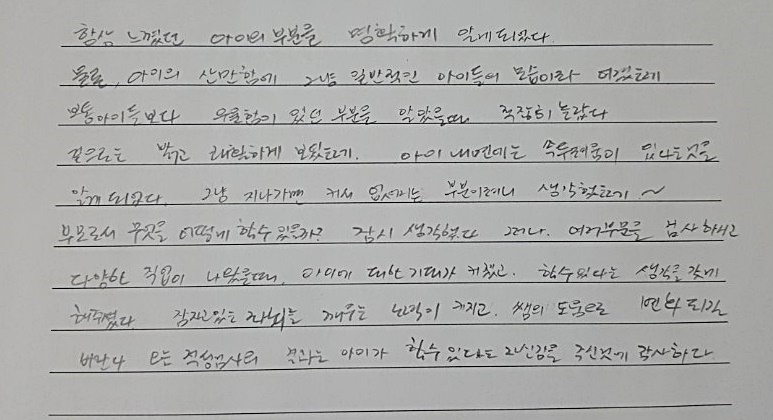 항상 느꼈던 아이의 부분를 명확하게 알게 되었다.
물론, 아이의 산만함에 그냥 일반적인 아이들의 모습이라 여겼는데
보통아이들보다 우울함이 있던 부분을 알았을때 굉장히 놀랐다
겉으로는 밝고 쾌활하게 보였는데. 아이 내면에는 두려움이 있다는것을
알게 되었다. 그냥 지나가면 커서 없어지는 부분이려니 생각했는데 ~
부모로서 무엇을 어떻게 할수 있을까? 잠시 생각했다 그러나. 여러부문를 검사하시고
다양한 직업이 나왔을때, 아이에 대한 기대가 커졌고. 할수있다는 생각를 갖게
해주셨다 잠자고있는 자뇌를 깨우는 커지고. 쌤의 도움으로 변화 되길
바란다 또는 적성검사의 결과는 아이가 할수있다는 자신감을 주신것에 감사하다.